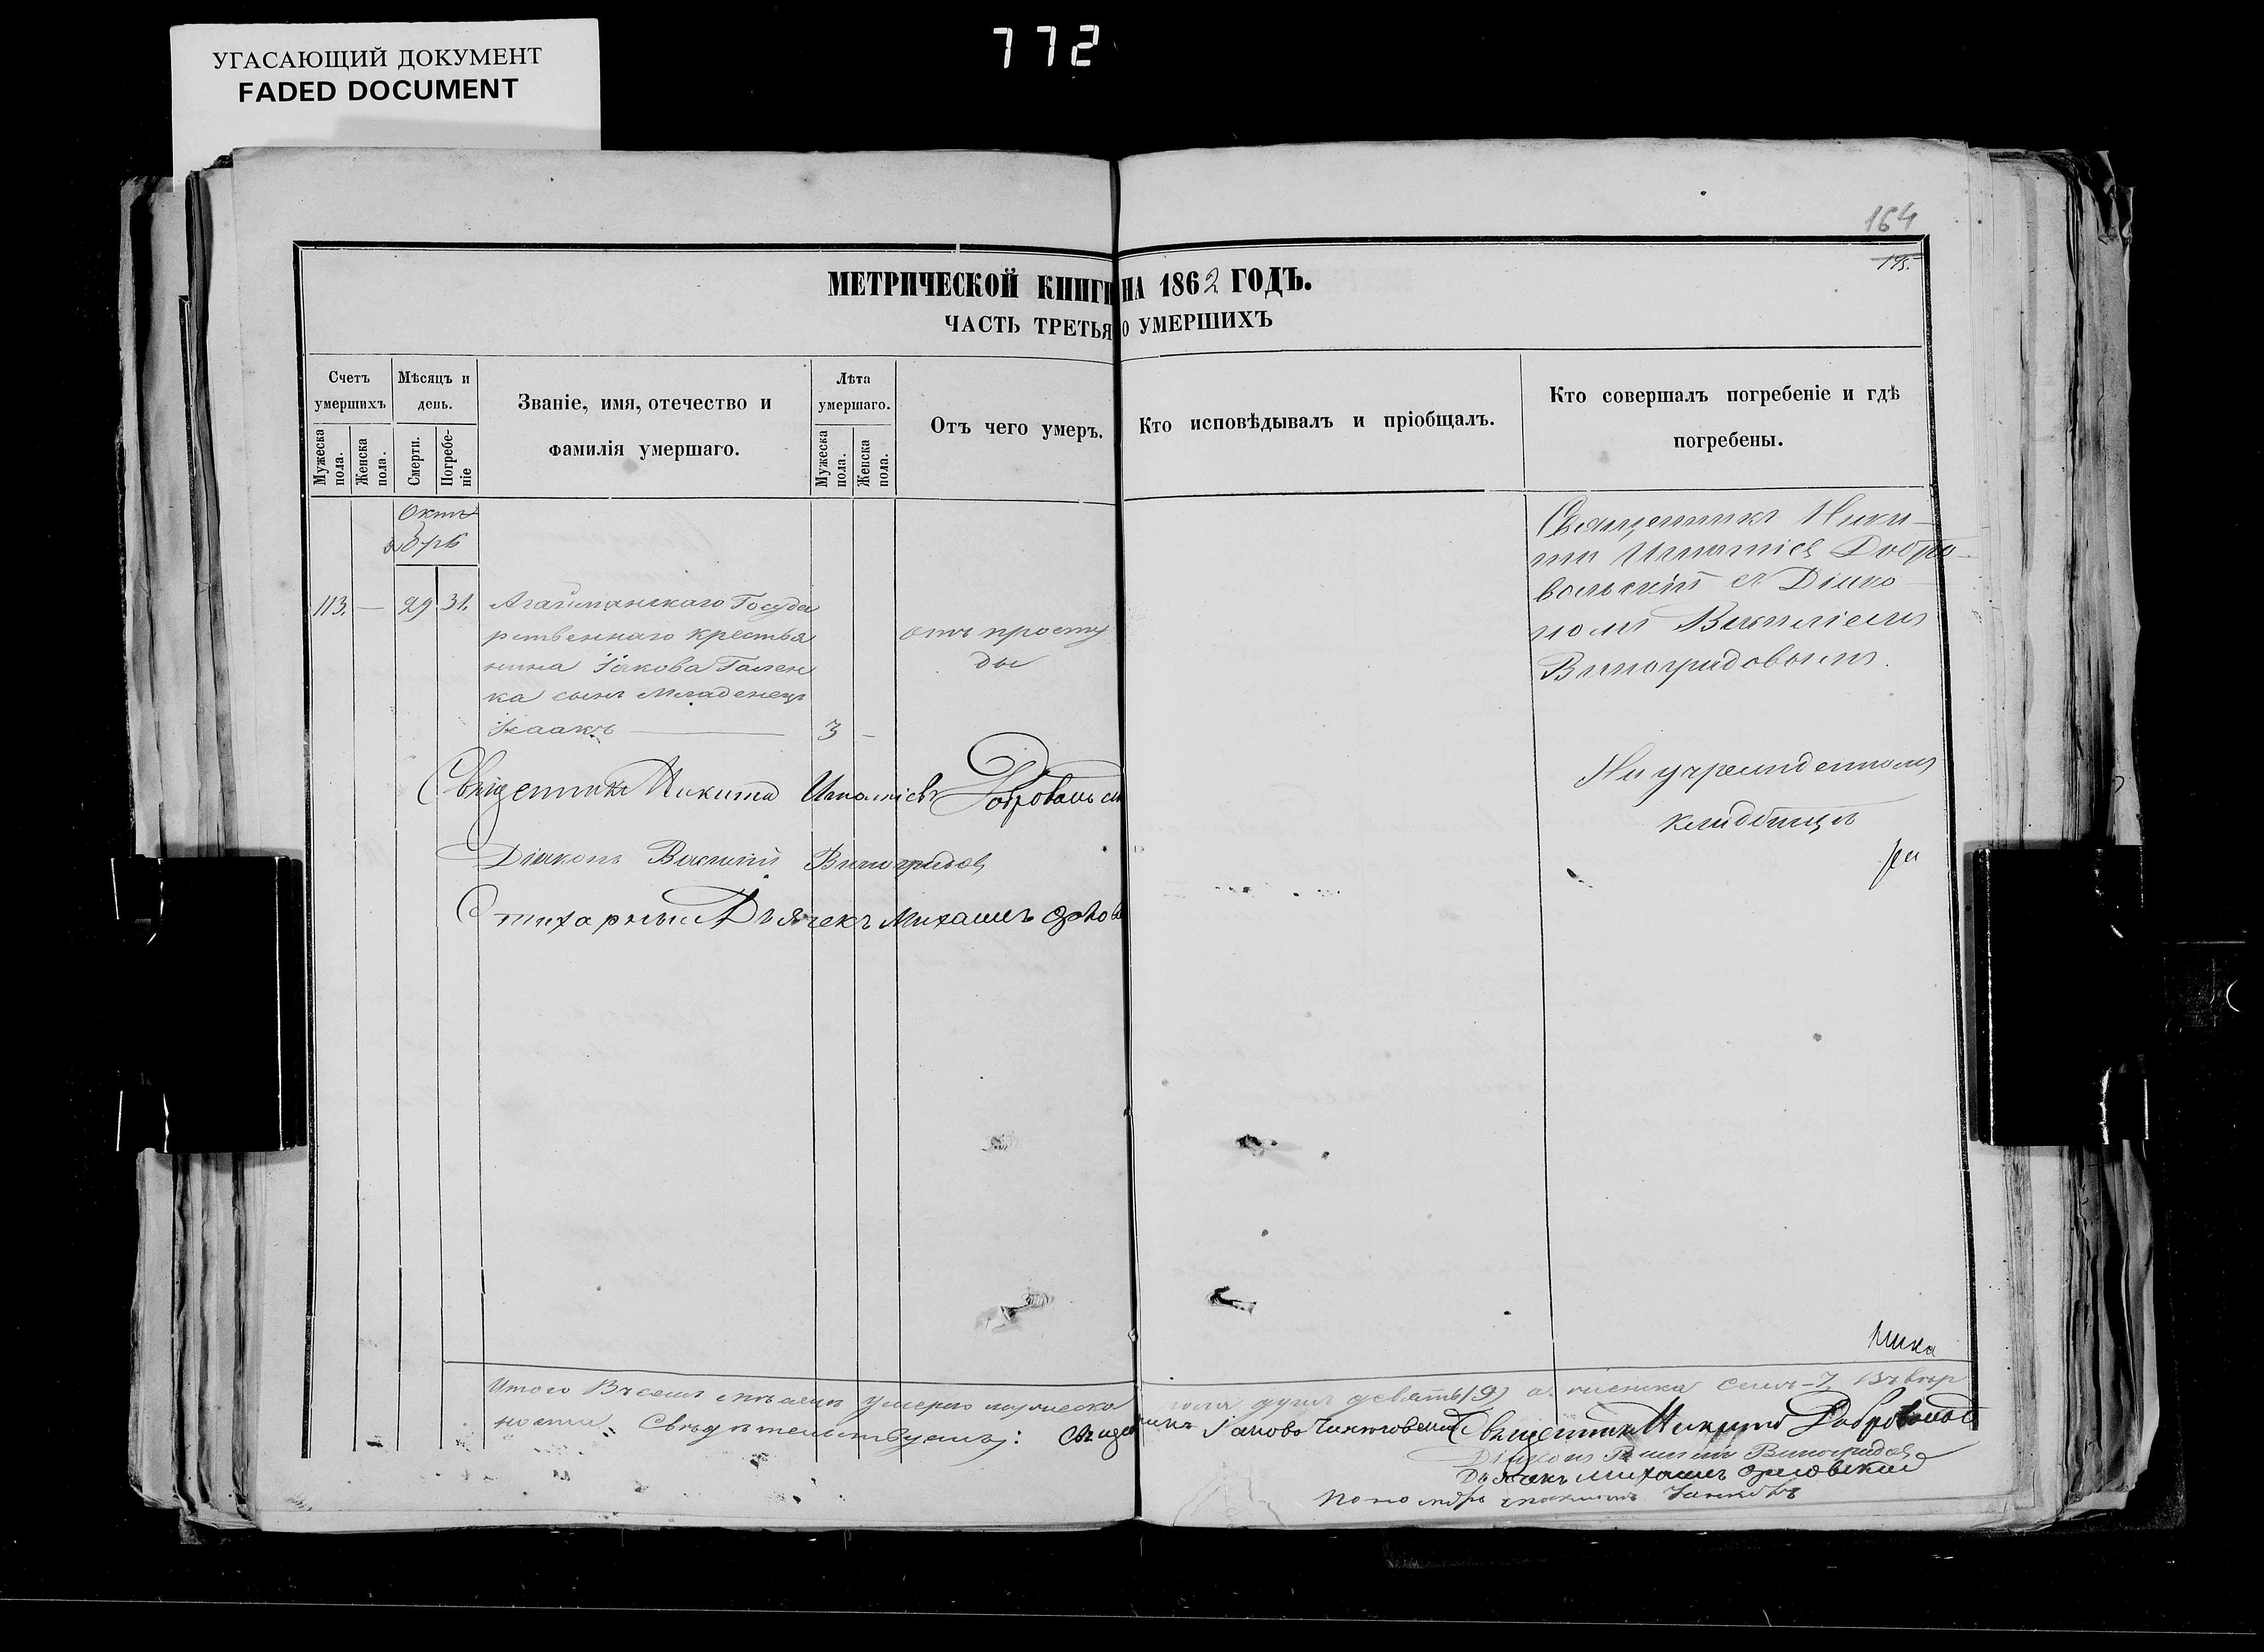 УГАСАЮЩИЙ ДОКУМЕНТ
FADED DOCUMENT
772
164
195.
МЕТРИЧЕСКОЙ КНИГИ НА 1862 ГОДЪ.
ЧАСТЬ ТРЕТЬЯ О УМЕРШИХЪ
Счетъ умершихъ
Мужеска пола.
Женска пола.
Мѣсяцъ и день.
Смерти.
Погребе-ніе
Званіе, имя, отечество и
фамилія умершаго.
Лѣта умершаго.
Мужеска пола.
Женска пола.
Отъ чего умеръ.
Кто исповѣдывалъ и пріобщалъ.
Кто совершалъ погребеніе и гдѣ
погребены.
Октя
брь
113. — 29 31.
Агайманскаго Госуда
рственнаго крестья
нина Іакова Гален
ка сынъ младенецъ
Ісаакъ — 3 —
отъ просту
ды
Священникъ Ники-
та Игнатіевъ Добро-
вольскій съ Діако
номъ Василіемъ
Виноградовымъ.
На учрежденномъ
кладбищѣ
Священникъ Никита Игнатіевъ Добровольск
Діаконъ Василій Виноградовъ
Стихарный Дьячекъ Михаилъ Орлов
Итого Въ семъ мѣсяцѣ умерло мужеска пола душъ девять (9) а женска семь - 7. Въ вѣр
ности Свѣдѣтельствуемъ: Священникъ Іаковъ Священникъ Никита Добровольс
Діаконъ Василій Виноградовъ
Дьячекъ Михаилъ Орловскій
Пономарь